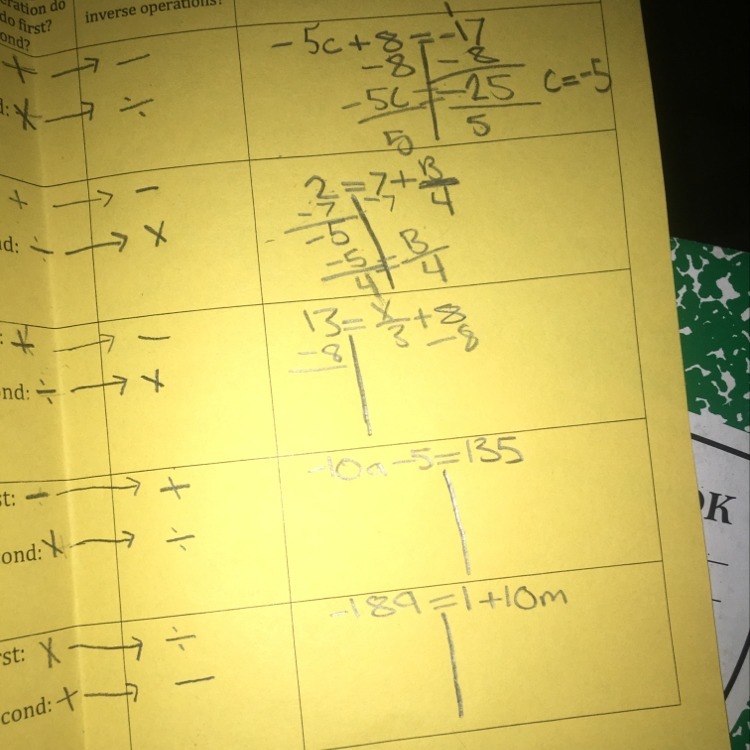 eration do
do first?
ond?
inverse operations?
+ → −
d: x → ÷
-5c + 8 = -17
-8 -8
-5c = -25 c = -5
5 5
+ → −
nd: ÷ → x
2 = 7 + B/4
-7 -7
-5
-5/4 = B/4
: + → −
ond: ÷ → x
13 = x/3 + 8
-8 -8
st: − → +
ond: x → ÷
-10a - 5 = 135
rst: x → ÷
cond: + → −
-189 = 1 + 10m
OK